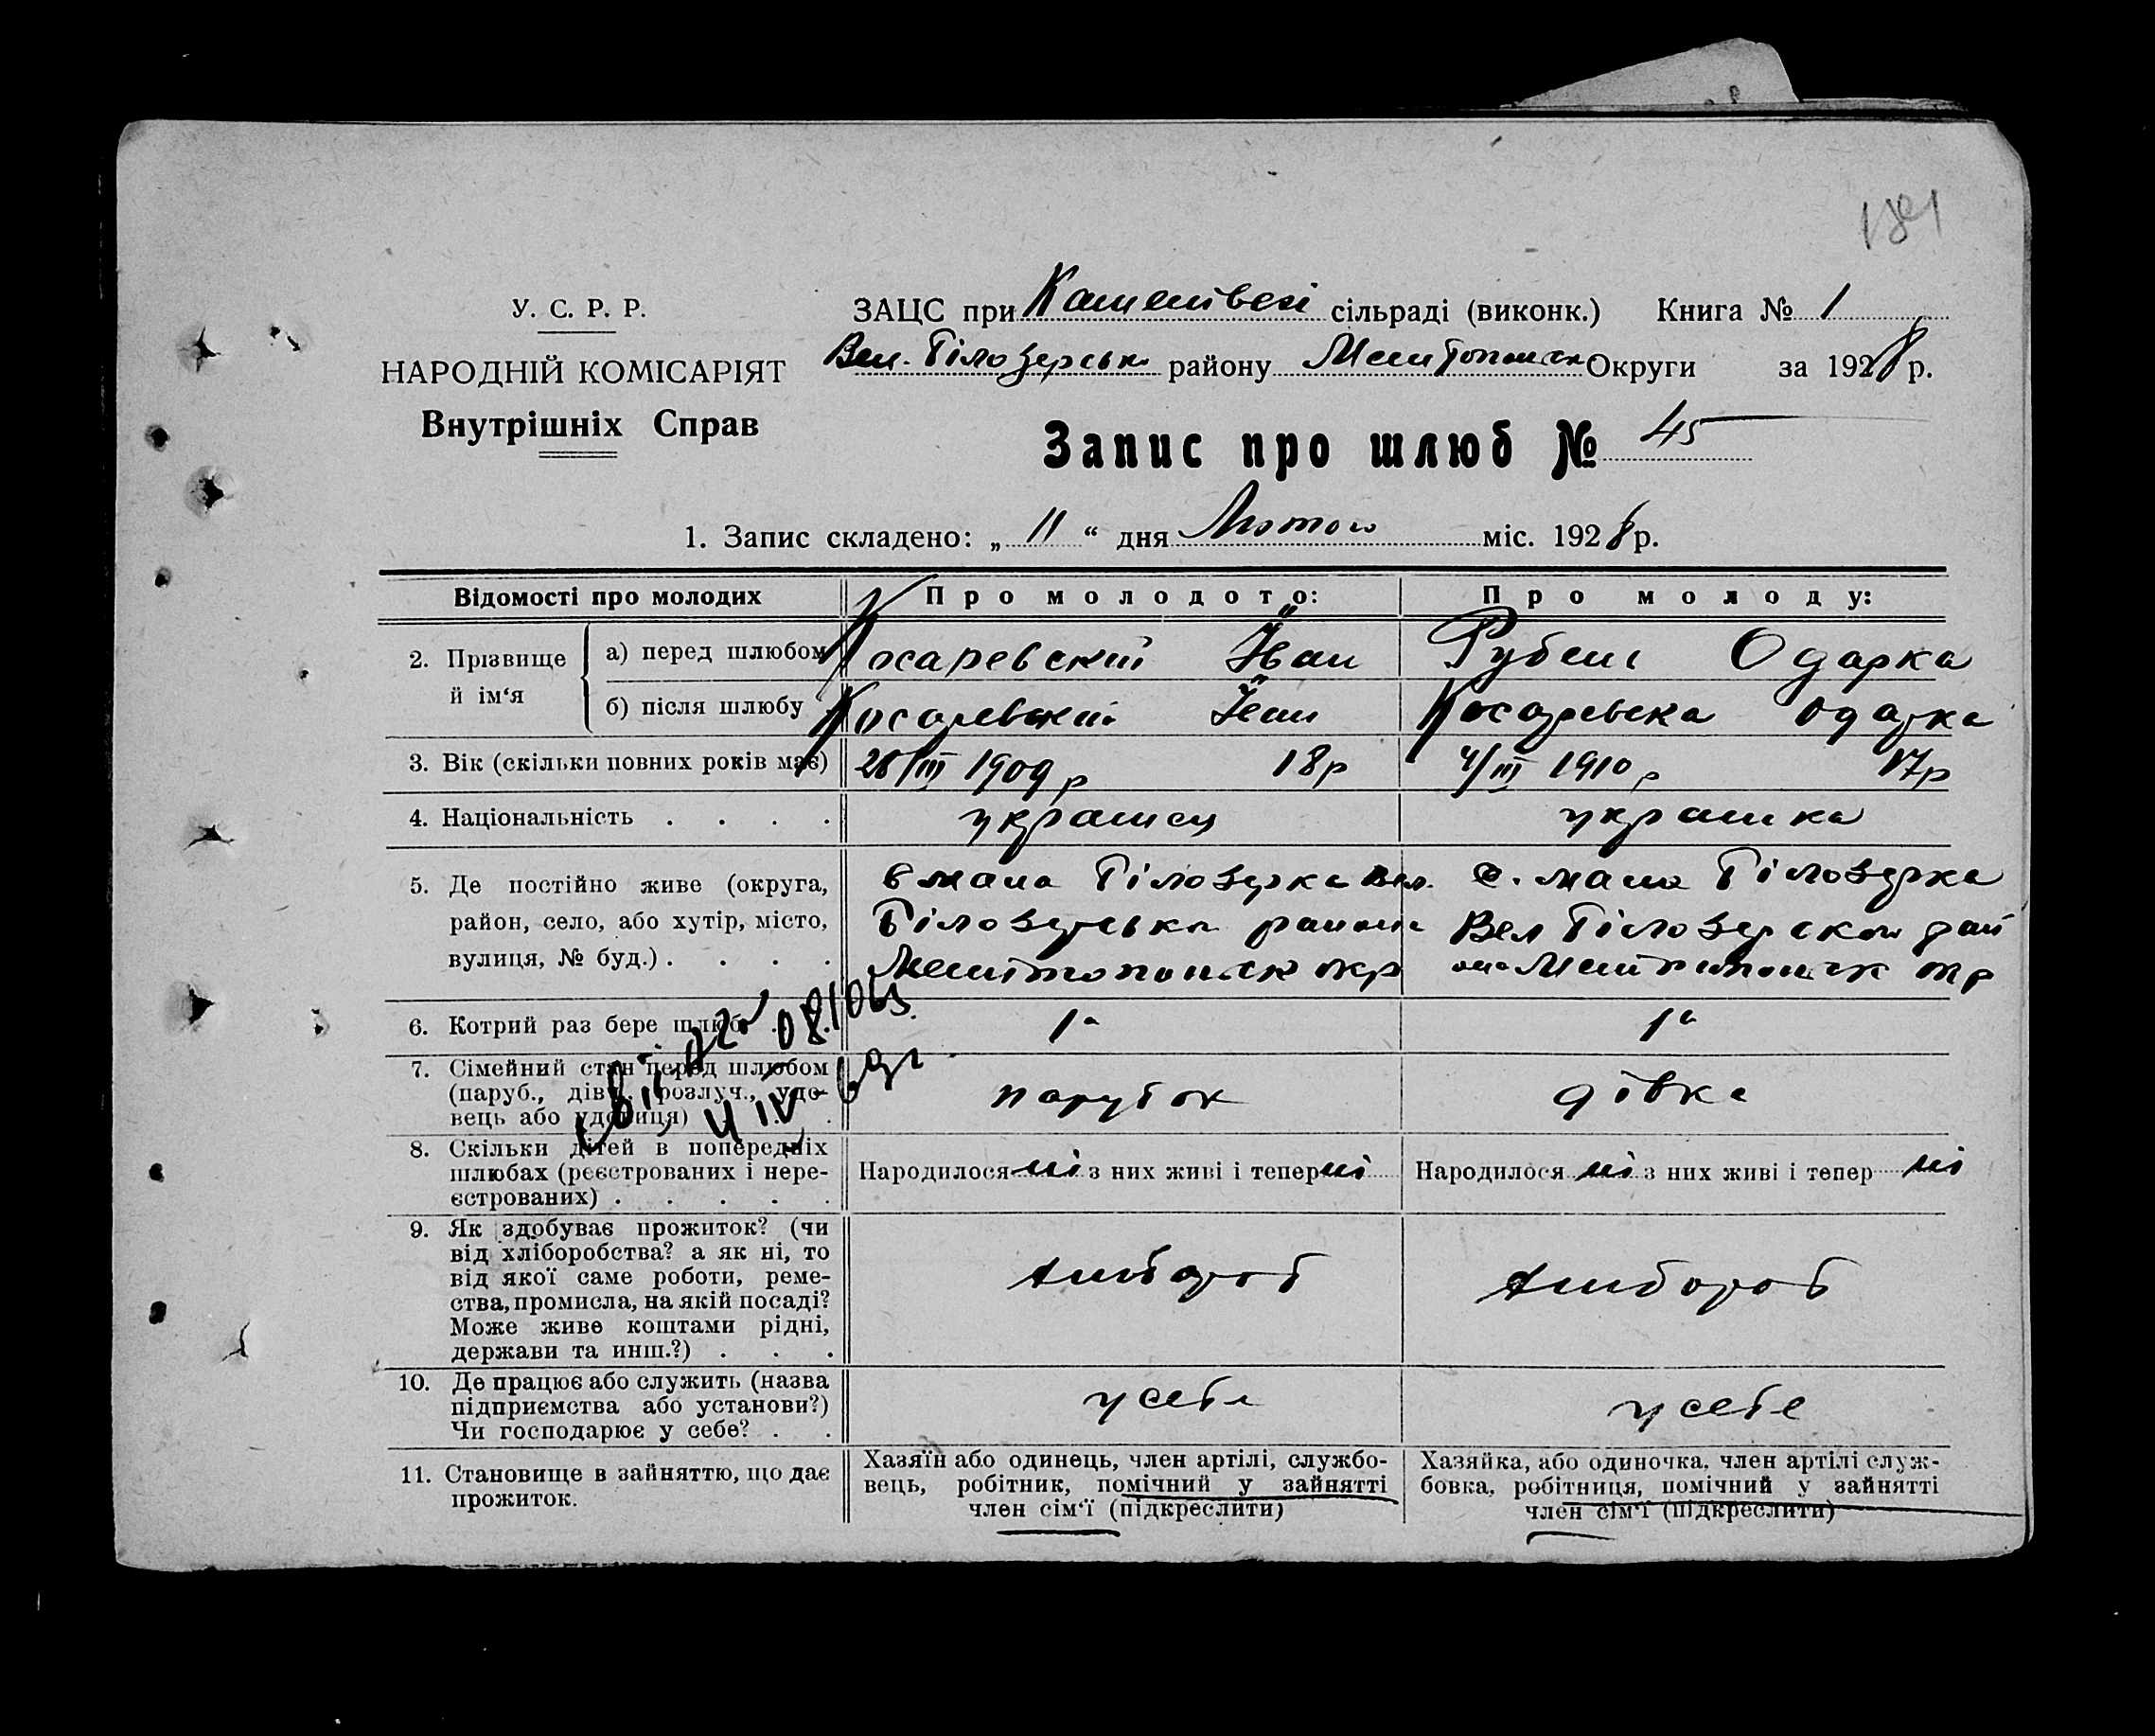 181
У. С. Р. Р.
НАРОДНІЙ КОМІСАРІЯТ
Внутрішніх Справ
ЗАЦС при сільраді (виконк.) Книга № 1
Вел. Білозерськ району Мелитопольск Округи за 1928 р.
Запис про шлюб № 45
1. Запис складено: „ 11 “ дня Лютого міс. 1928 р.
Відомості про молодих Про молодого: Про молоду:
2. Прізвище й ім‘я а) перед шлюбом Косаревский Іван Рубан Одарка
б) після шлюбу Косаревский Іван Косаревска Одарка
3. Вік (скільки повних років має) 28/III 1909 р 18 р 4/III 1910 р 17 р
4. Національність . . . . украинец украинка
5. Де постійно живе (округа, район, село, або хутір, місто, вулиця, № буд.) . . . .
с мала Білозерка Вел.
Білозерська района
Мелитопольск окр
с. мала Білозерка
Вел Білозерской рай
она Мелитопольск окр
6. Котрий раз бере шлюб . . . 1а 1а
7. Сімейний стан перед шлюбом
(паруб., дівч., розлуч., удо-
вець або удовиця) . . . парубок дівка
8. Скільки дітей в попередніх
шлюбах (реєстрованих і нере-
єстрованих) . . . . .
Народилося ні з них живі і тепер ні
Народилося ні з них живі і тепер ні
9. Як здобуває прожиток? (чи
від хліборобства? а як ні, то
від якої саме роботи, реме-
ства, промисла, на якій посаді?
Може живе коштами рідні,
держави та инш.?) . . .
хлібороб
хлібороб
10. Де працює або служить (назва
підприємства або установи?)
Чи господарює у себе? . .
у себе
у себе
11. Становище в зайняттю, що дає
прожиток.
Хазяїн або одинець, член артілі, службо-
вець, робітник, помічний у зайнятті
член сім‘ї (підкреслити)
Хазяйка, або одиночка, член артілі служ-
бовка, робітниця, помічний у зайнятті
член сім‘ї (підкреслити)